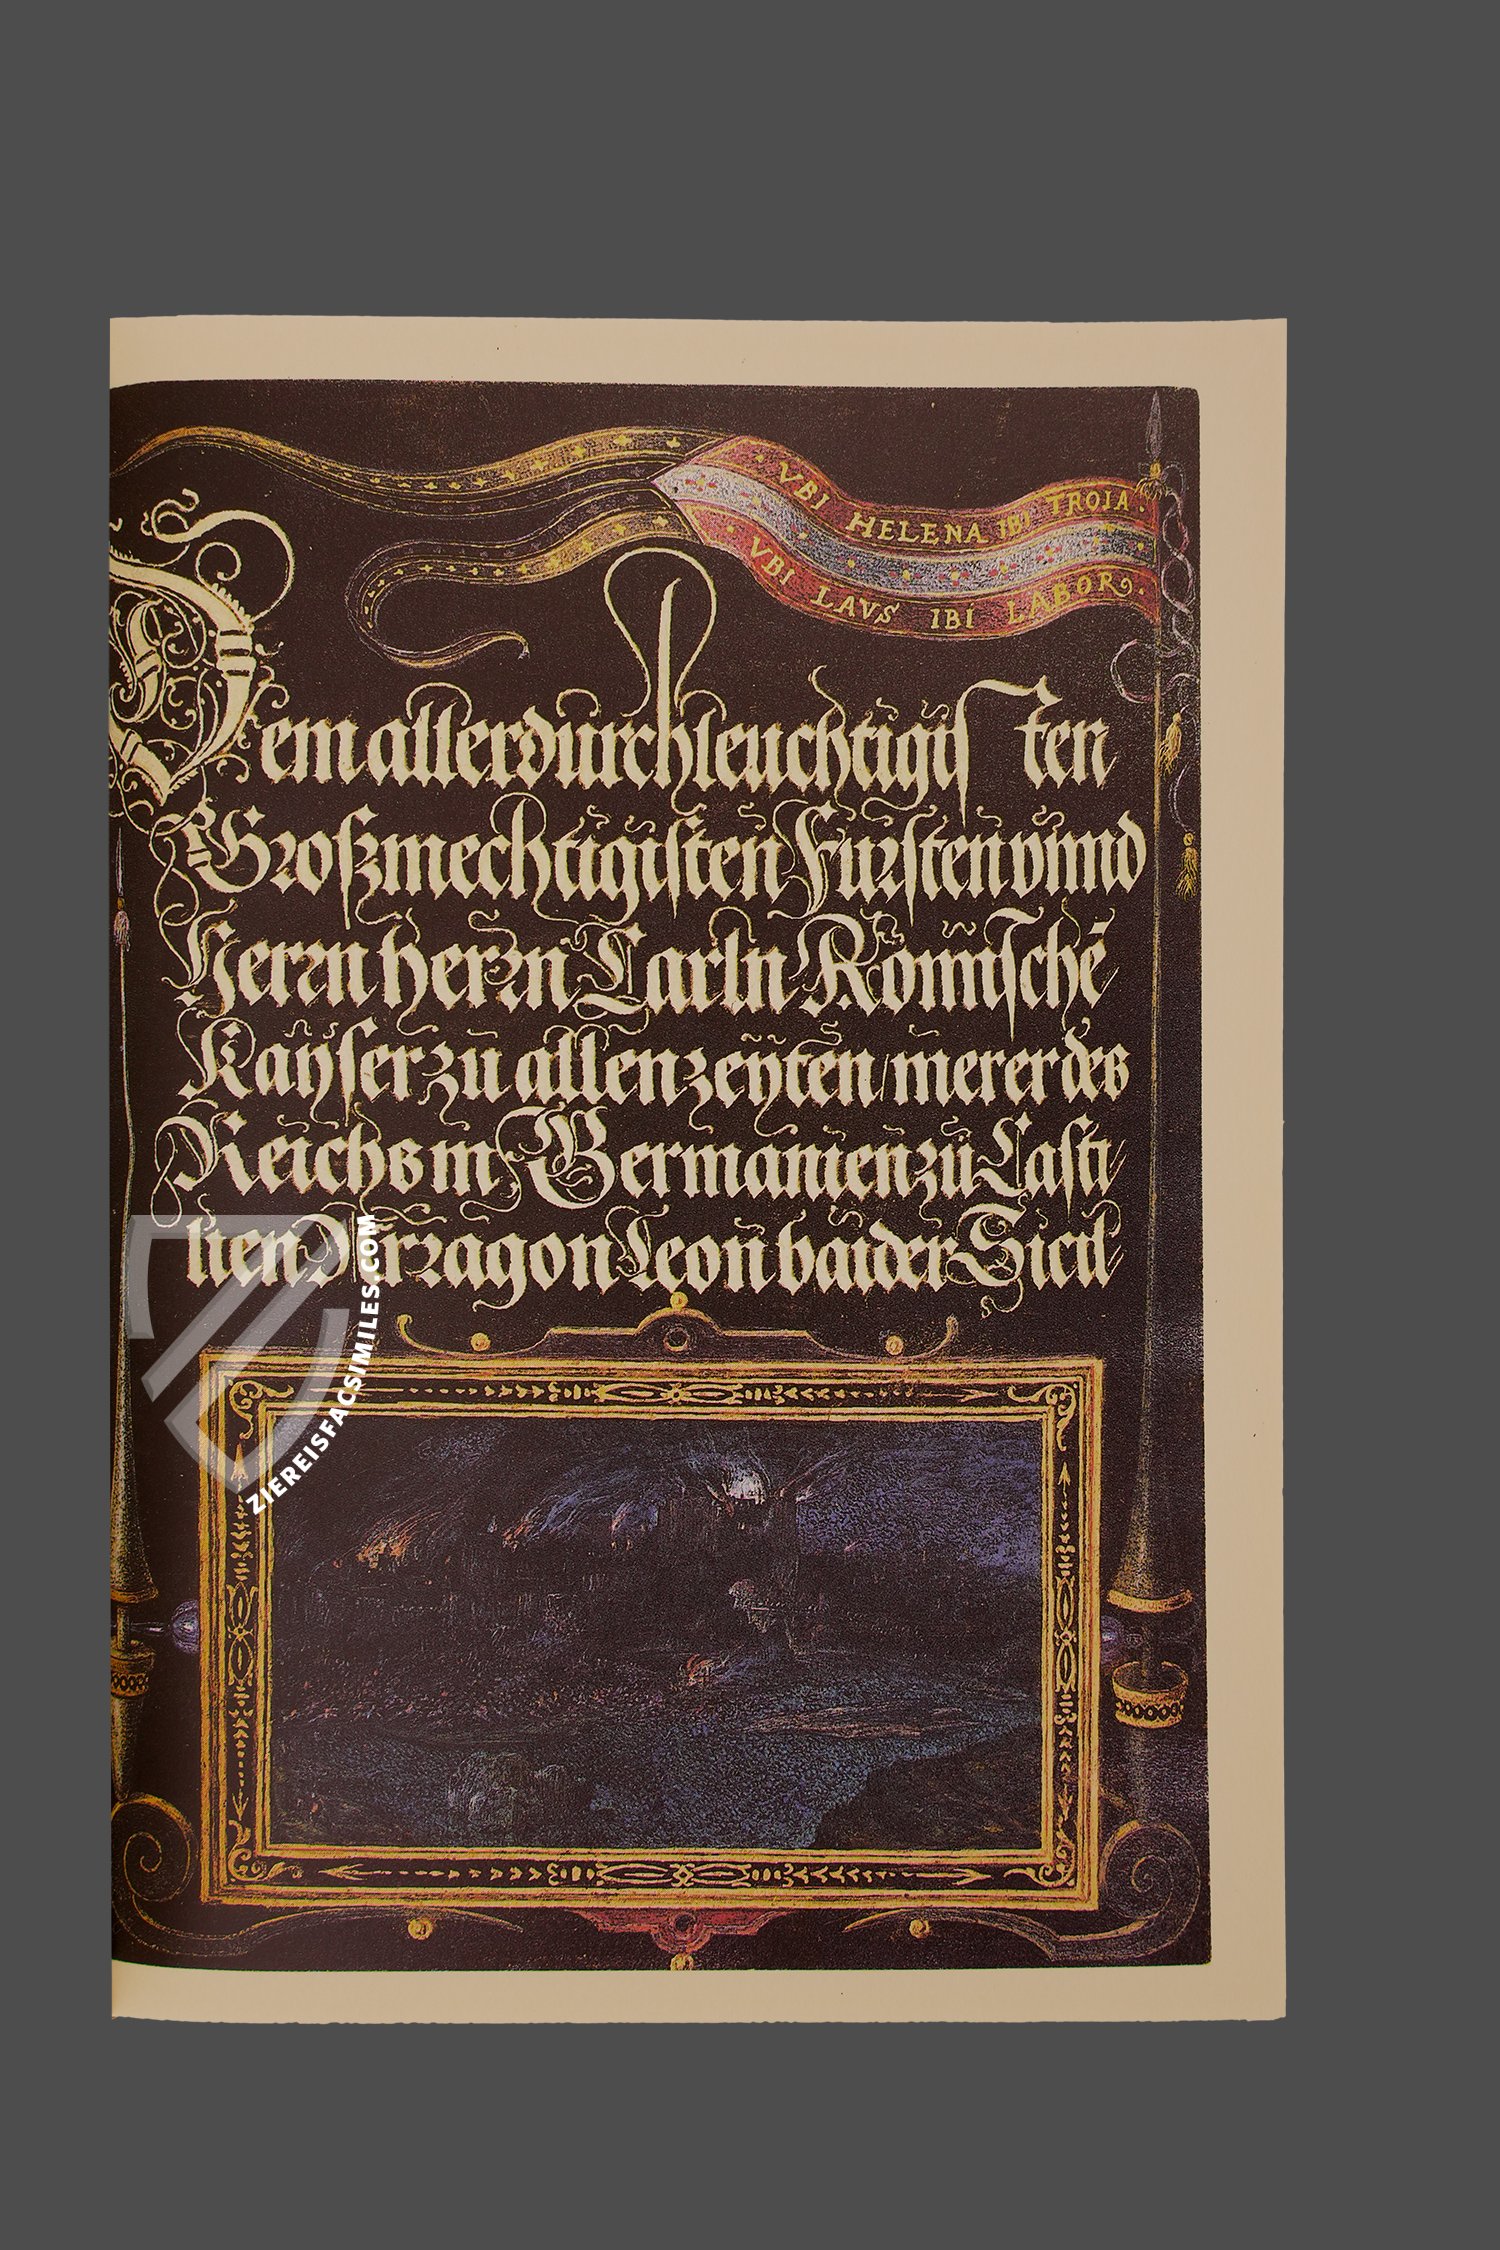 VBI HELENA IBI TROIA.
VBI LAVS IBI LABOR.
Dem allerdurchleuchtigisten
Großmechtigisten Fürsten vnnd
Herrn herrn Carln Römischē
Kayser zu allen zeyten / merer des
Reichs in Germanien zu Casti
lien Arragon Leon baider Sicil
ZIEREISFACSIMILES.COM